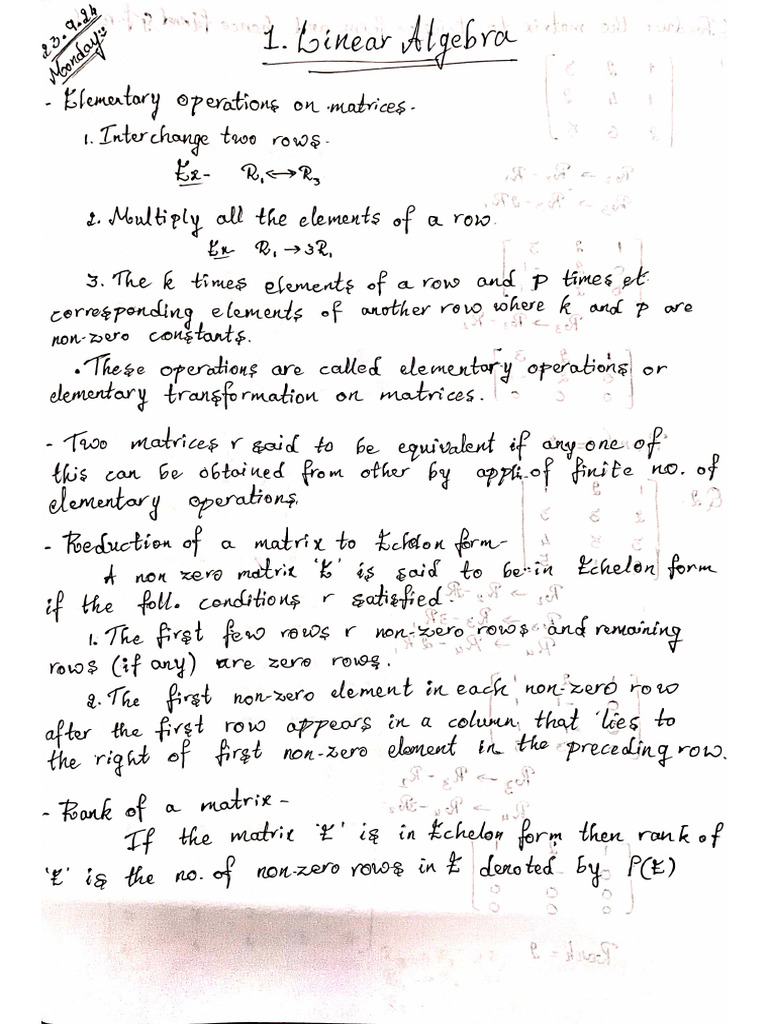 23.9.24
Monday
1. Linear Algebra
- Elementary operations on matrices.
1. Interchange two rows.
Ex- R₁↔R₃
2. Multiply all the elements of a row.
Ex R₁→3R₁
3. The k times elements of a row and p times et
corresponding elements of another row where k and p are
non-zero constants.
• These operations are called elementary operations or
elementary transformation on matrices.
- Two matrices r said to be equivalent if any one of
this can be obtained from other by appli. of finite no. of
elementary operations.
- Reduction of a matrix to Echelon form-
A non zero matrix 'E' is said to be in Echelon form
if the foll. conditions r satisfied.
1. The first few rows r non-zero rows and remaining
rows (if any) are zero rows.
2. The first non-zero element in each non-zero row
after the first row appears in a column that lies to
the right of first non-zero element in the preceding row.
- Rank of a matrix-
If the matrix 'E' is in Echelon form then rank of
'E' is the no. of non-zero rows in E denoted by P(E)